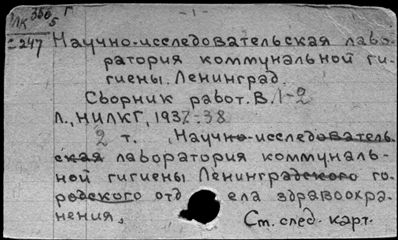 ЛК 350/5 Г
-1-
=247
Научно-исследовательская лабо-
ратория коммунальной ги-
гиены. Ленинград.
Сборник работ. В.1-2
Л., НИЛКГ, 1937-38
2 т. Научно-исследователь
ская лаборатория коммуналь-
ной гигиены Ленинградского го-
родского отдела здравоохра-
нения.
См. след. карт.